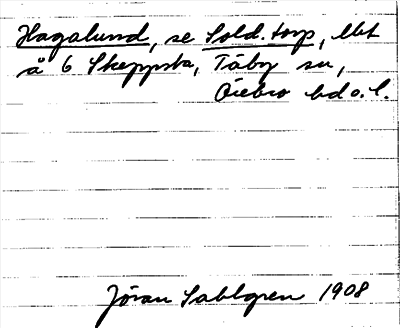 Hagalund, se Sold.torp, lbt
å 6 Skeppsta, Täby sn,
Örebro hd o. l.
Jöran Sahlgren 1908